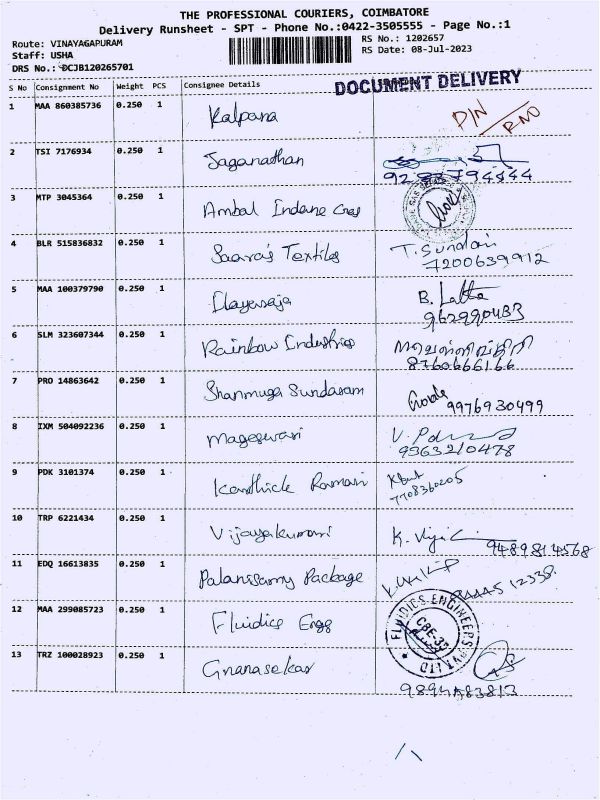 THE PROFESSIONAL COURIERS, COIMBATORE
Delivery Runsheet - SPT - Phone No.:0422-3505555 - Page No.:1
Route: VINAYAGAPURAM
Staff: USHA
DRS No.: DCJB120265701
RS No.: 1202657
RS Date: 08-Jul-2023
S No Consignment No Weight PCS Consignee Details
DOCUMENT DELIVERY
1 MAA 860385736 0.250 1 Kalpana DIN / R.NO
2 TSI 7176934 0.250 1 Jaganathan
3 MTP 3045364 0.250 1 Ambal Indane Gas
4 BLR 515836832 0.250 1 Saara's Textiles T. Sundari
7200639912
5 MAA 100379790 0.250 1 Ilayaraja B. Latha
962990433
6 SLM 323607344 0.250 1 Rainbow Industries
8760666166
7 PRO 14863642 0.250 1 Shanmuga Sundaram 9976930499
8 IXM 504092236 0.250 1 Mageswari
9963210478
9 PDK 3101374 0.250 1 Karthick Raman
7708360205
10 TRP 6221434 0.250 1 Vijayakumari K. Viji 9489814568
11 EDQ 16613835 0.250 1 Palanisamy Package 12338
12 MAA 299085723 0.250 1 Fluidics Engg FLUIDICS ENGINEERS PVT LTD
13 TRZ 100028923 0.250 1 Gnanasekar